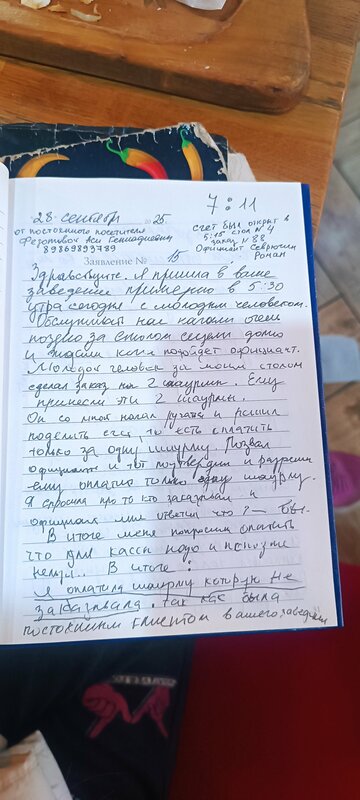 7:11
28 сентября 2025
от постоянного посетителя
Аси Геннадиевны
89869899789
счет был открыт в
5:15 стол №4
заказ №88
Официант Севрюгин
Роман
Заявление № 15
Здравствуйте. Я пришла в ваше
заведение примерно в 5:30
утра сегодня с молодым человеком.
Обслуживать нас начали очень
поздно за столом сидели долго
и ждали когда подойдет официант.
Молодой человек за моим столом
сделал заказ на 2 шаурмы. Ему
принесли эти 2 шаурмы.
Он со мной начал ругаться и решил
поделить счет, то есть оплатить
только за одну шаурму. Позвал
официанта и тот подтвердил и разрешил
ему оплатить только одну шаурму.
Я спросила про то кто заказывал и
официант мне ответил что? — Вы.
В итоге меня попросили оплатить
что для кассы надо и
нельзя.. В итоге:
Я оплатила шаурму которую не
заказывала, так как была
постоянным клиентом вашего заведения